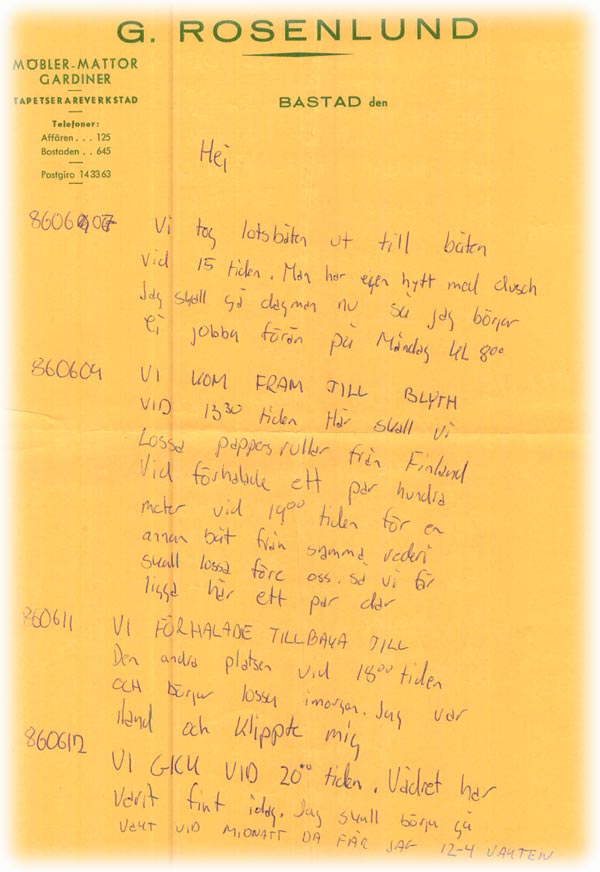 G. ROSENLUND
MÖBLER-MATTOR
GARDINER
TAPETSERAREVERKSTAD
Telefoner:
Affären . . . 125
Bostaden . . 645
Postgiro 14 33 63
BASTAD den
Hej
860607 Vi tog lotsbåten ut till båten
vid 15 tiden. Man har egen hytt med dusch
Jag skall gå dagman nu så jag börjar
ej jobba förän på Måndag kl 800
860609 VI KOM FRAM TILL BLYTH
VID 1330 tiden Här skall vi
Lossa pappersrullar från Finland
Vid förhalade ett par hundra
meter vid 1900 tiden för en
annan båt från samma rederi
skall lossa före oss. så vi får
ligga här ett par dar
860611 VI FÖRHALADE TILLBAKA TILL
Den andra platsen vid 1800 tiden
OCH börjar lossa imorgon. Jag var
iland och klippte mig
860612 VI GICK VID 2000 tiden. Vädret har
varit fint idag. Jag skall börja gå
VAKT VID MIDNATT DÅ FÅR JAG 12-4 VAKTEN